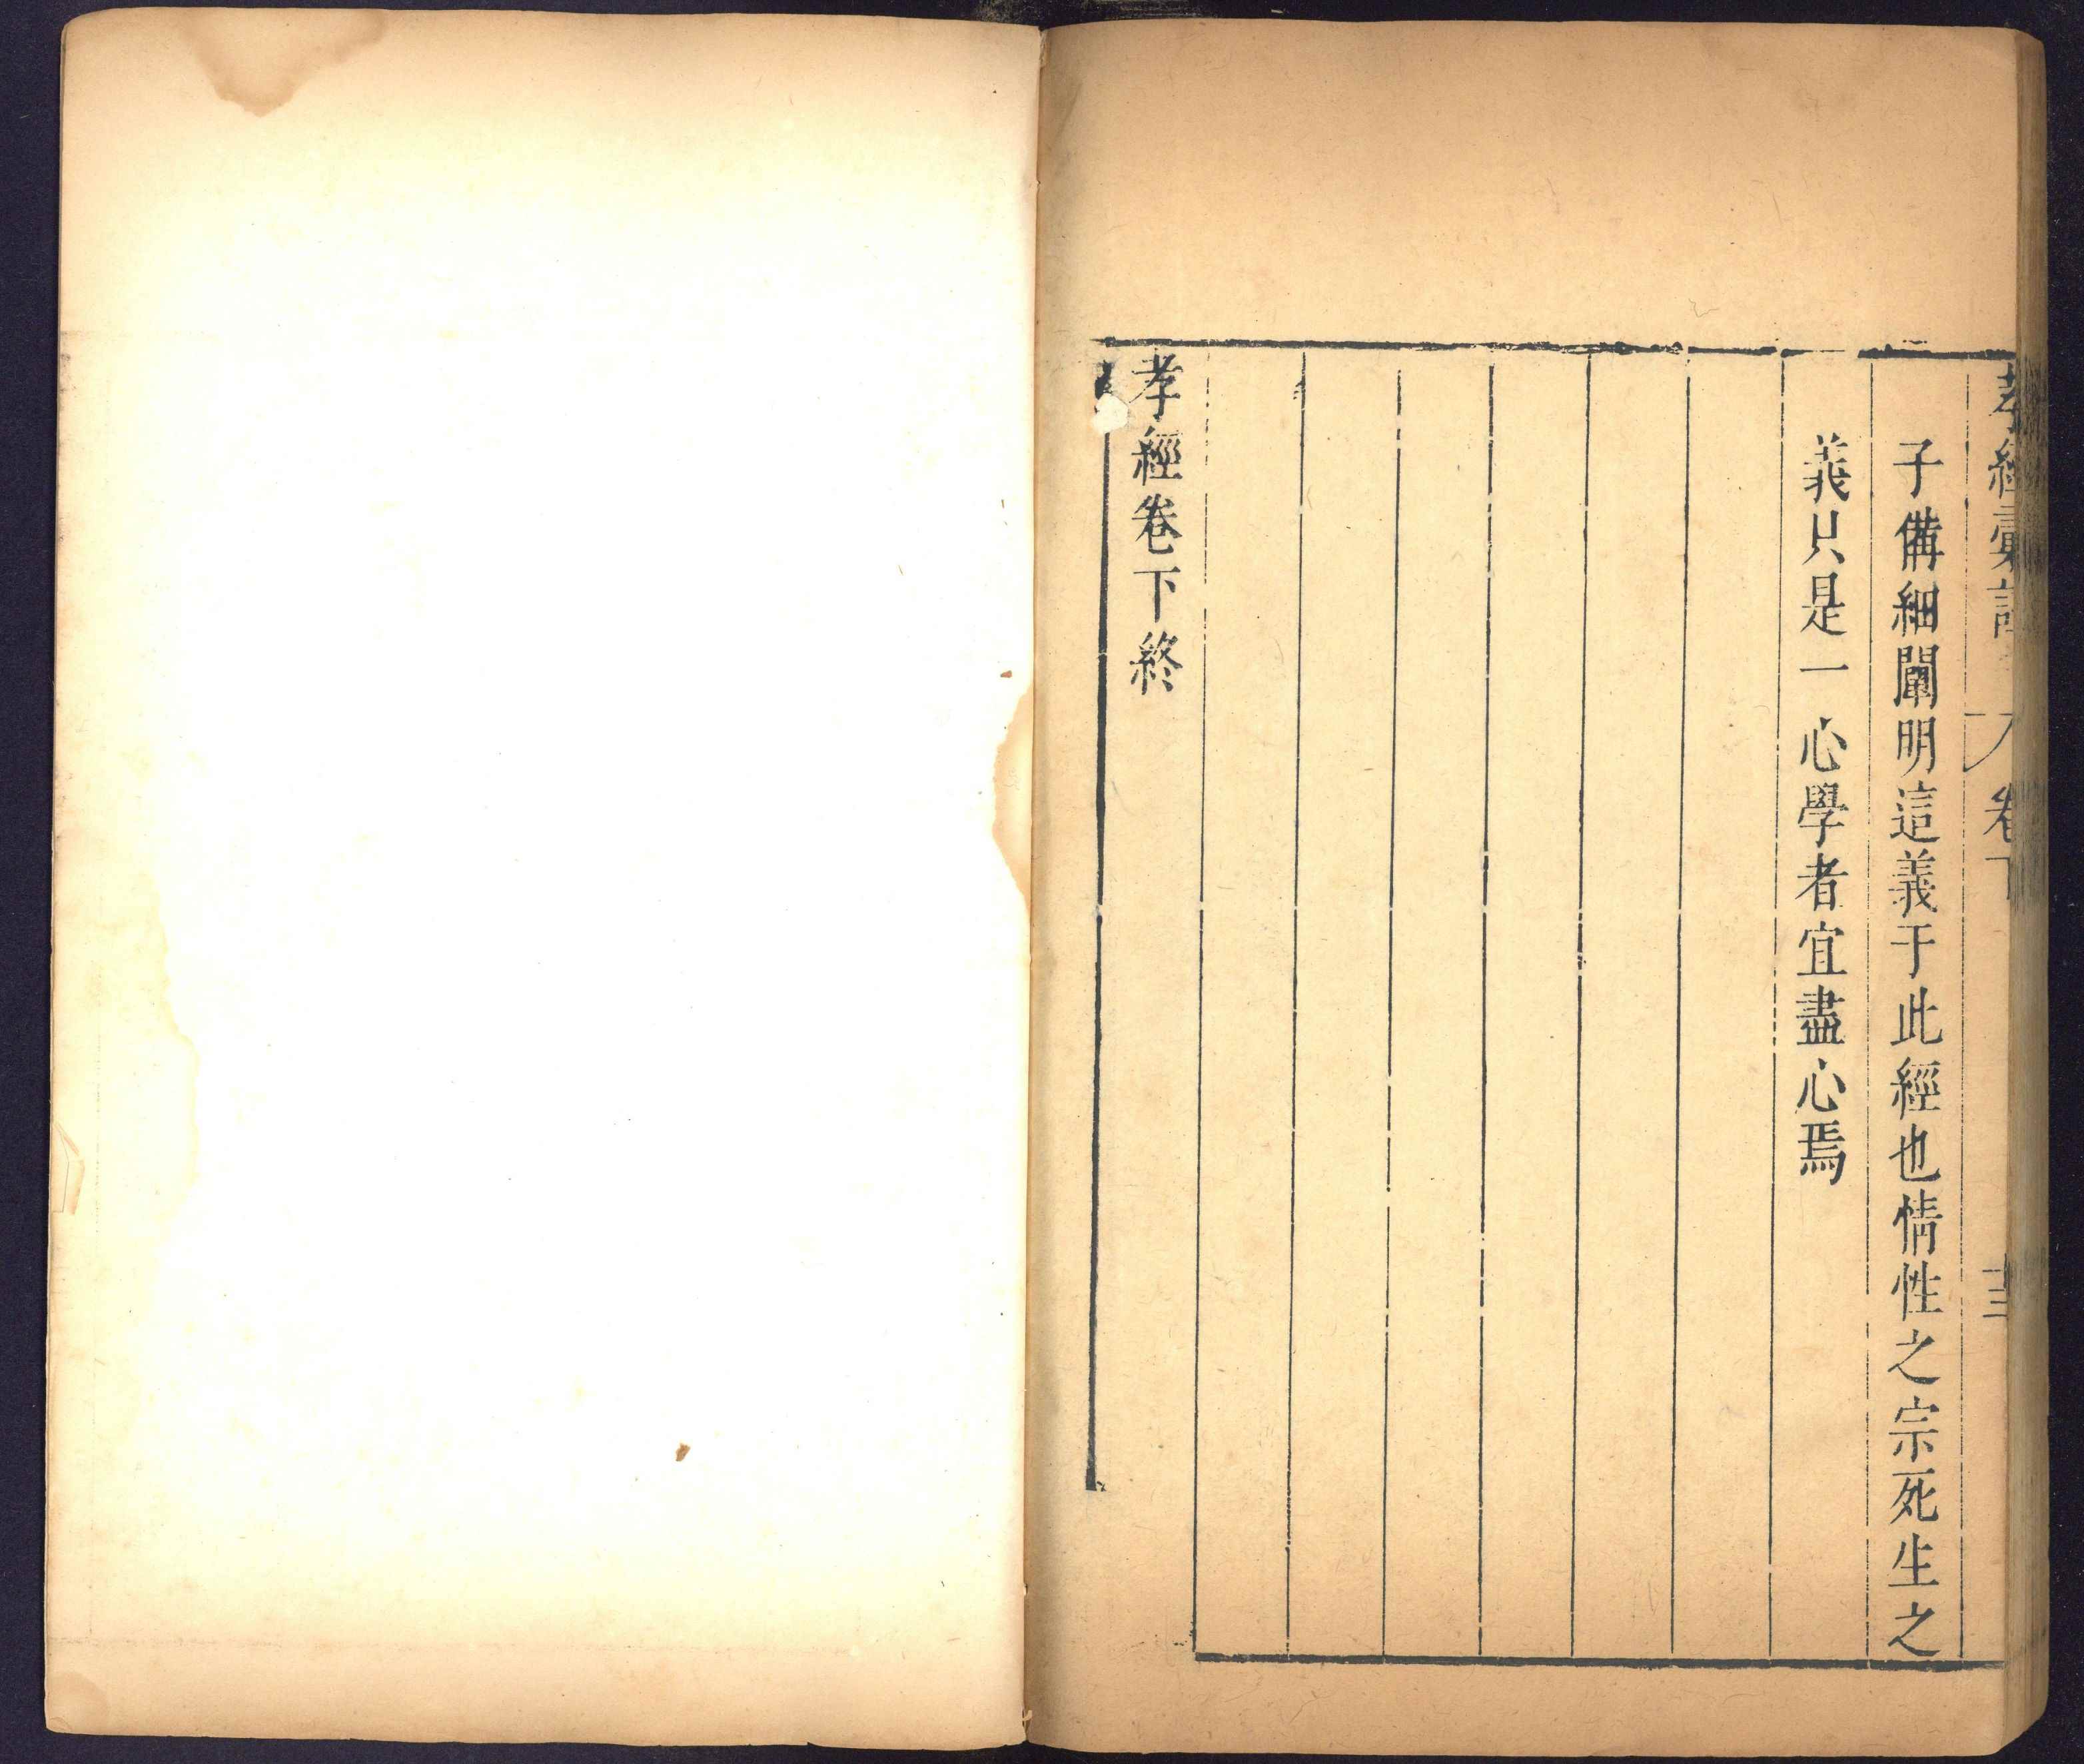 孝經彙註 卷下 十三
子備細闡明這義于此經也情性之宗死生之
義只是一心學者宜盡心焉
孝經卷下終